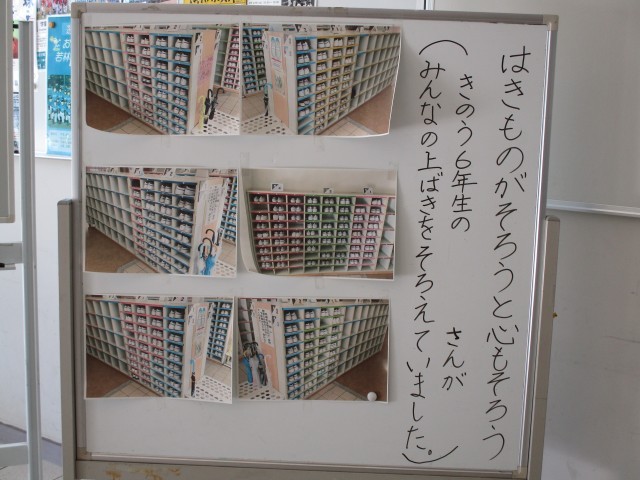 はきものがそろうと心もそろう
（きのう6年生の　　　さんが
みんなの上ばきをそろえていました。）